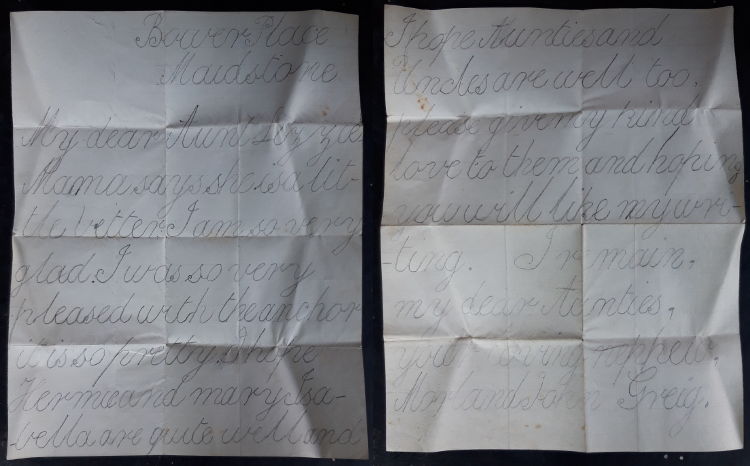 Bower Place
Maidstone
My dear Aunt Lizzie
Mama says she is a lit-
tle better I am so very
glad. I was so very
pleased with the anchor
it is so pretty. I hope
Hermie and mary Isa-
bella are quite well and
I hope Aunties and
Uncles are well too,
please give my kind
love to them and hoping
you will like my wri-
-ting. I remain,
my dear Aunties,
your loving nephew,
Morland John Greig.